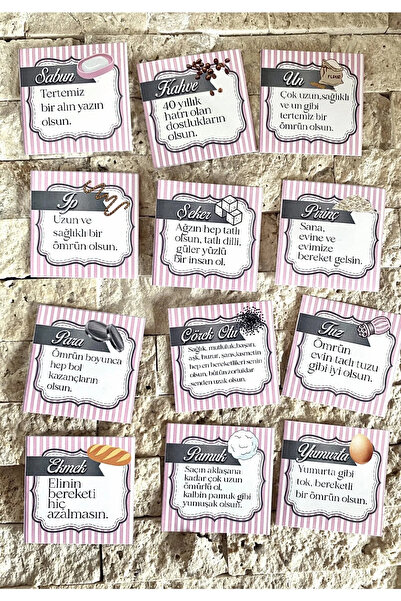 Sabun
Tertemiz
bir alın yazın
olsun.
Kahve
40 yıllık
hatrı olan
dostlukların
olsun.
Un
FLOUR
Çok uzun,sağlıklı
ve un gibi
tertemiz bir
ömrün olsun.
İp
Uzun ve
sağlıklı bir
ömrün olsun.
Şeker
Ağzın hep tatlı
olsun, tatlı dilli,
güler yüzlü
bir insan ol.
Pirinç
Sana,
evine ve
evimize
bereket gelsin.
Para
Ömrün boyunca
hep bol
kazançların
olsun.
Çörek Otu
Sağlık, mutluluk,başarı,
aşk, huzur, şans,kısmetin
hep en bereketlileri senin
olsun, bütün zorluklar
senden uzak olsun.
Tuz
Ömrün
evin tadı tuzu
gibi iyi olsun.
Ekmek
Elinin
bereketi
hiç
azalmasın.
Pamuk
Saçın aklaşana
kadar çok uzun
ömürlü ol,
kalbin pamuk gibi
yumuşak olsun.
Yumurta
Yumurta gibi
tok, bereketli
bir ömrün olsun.